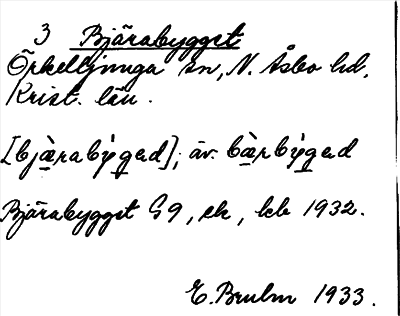 3 Bjärabygget
Örkelljunga sn, N. Åsbo hd,
Krist. län.
[bjæ̀rabýgəd]; äv. bæ̀rbýgəd
Bjärabygget G9, ek, kb 1932.
E. Bruhn 1933.